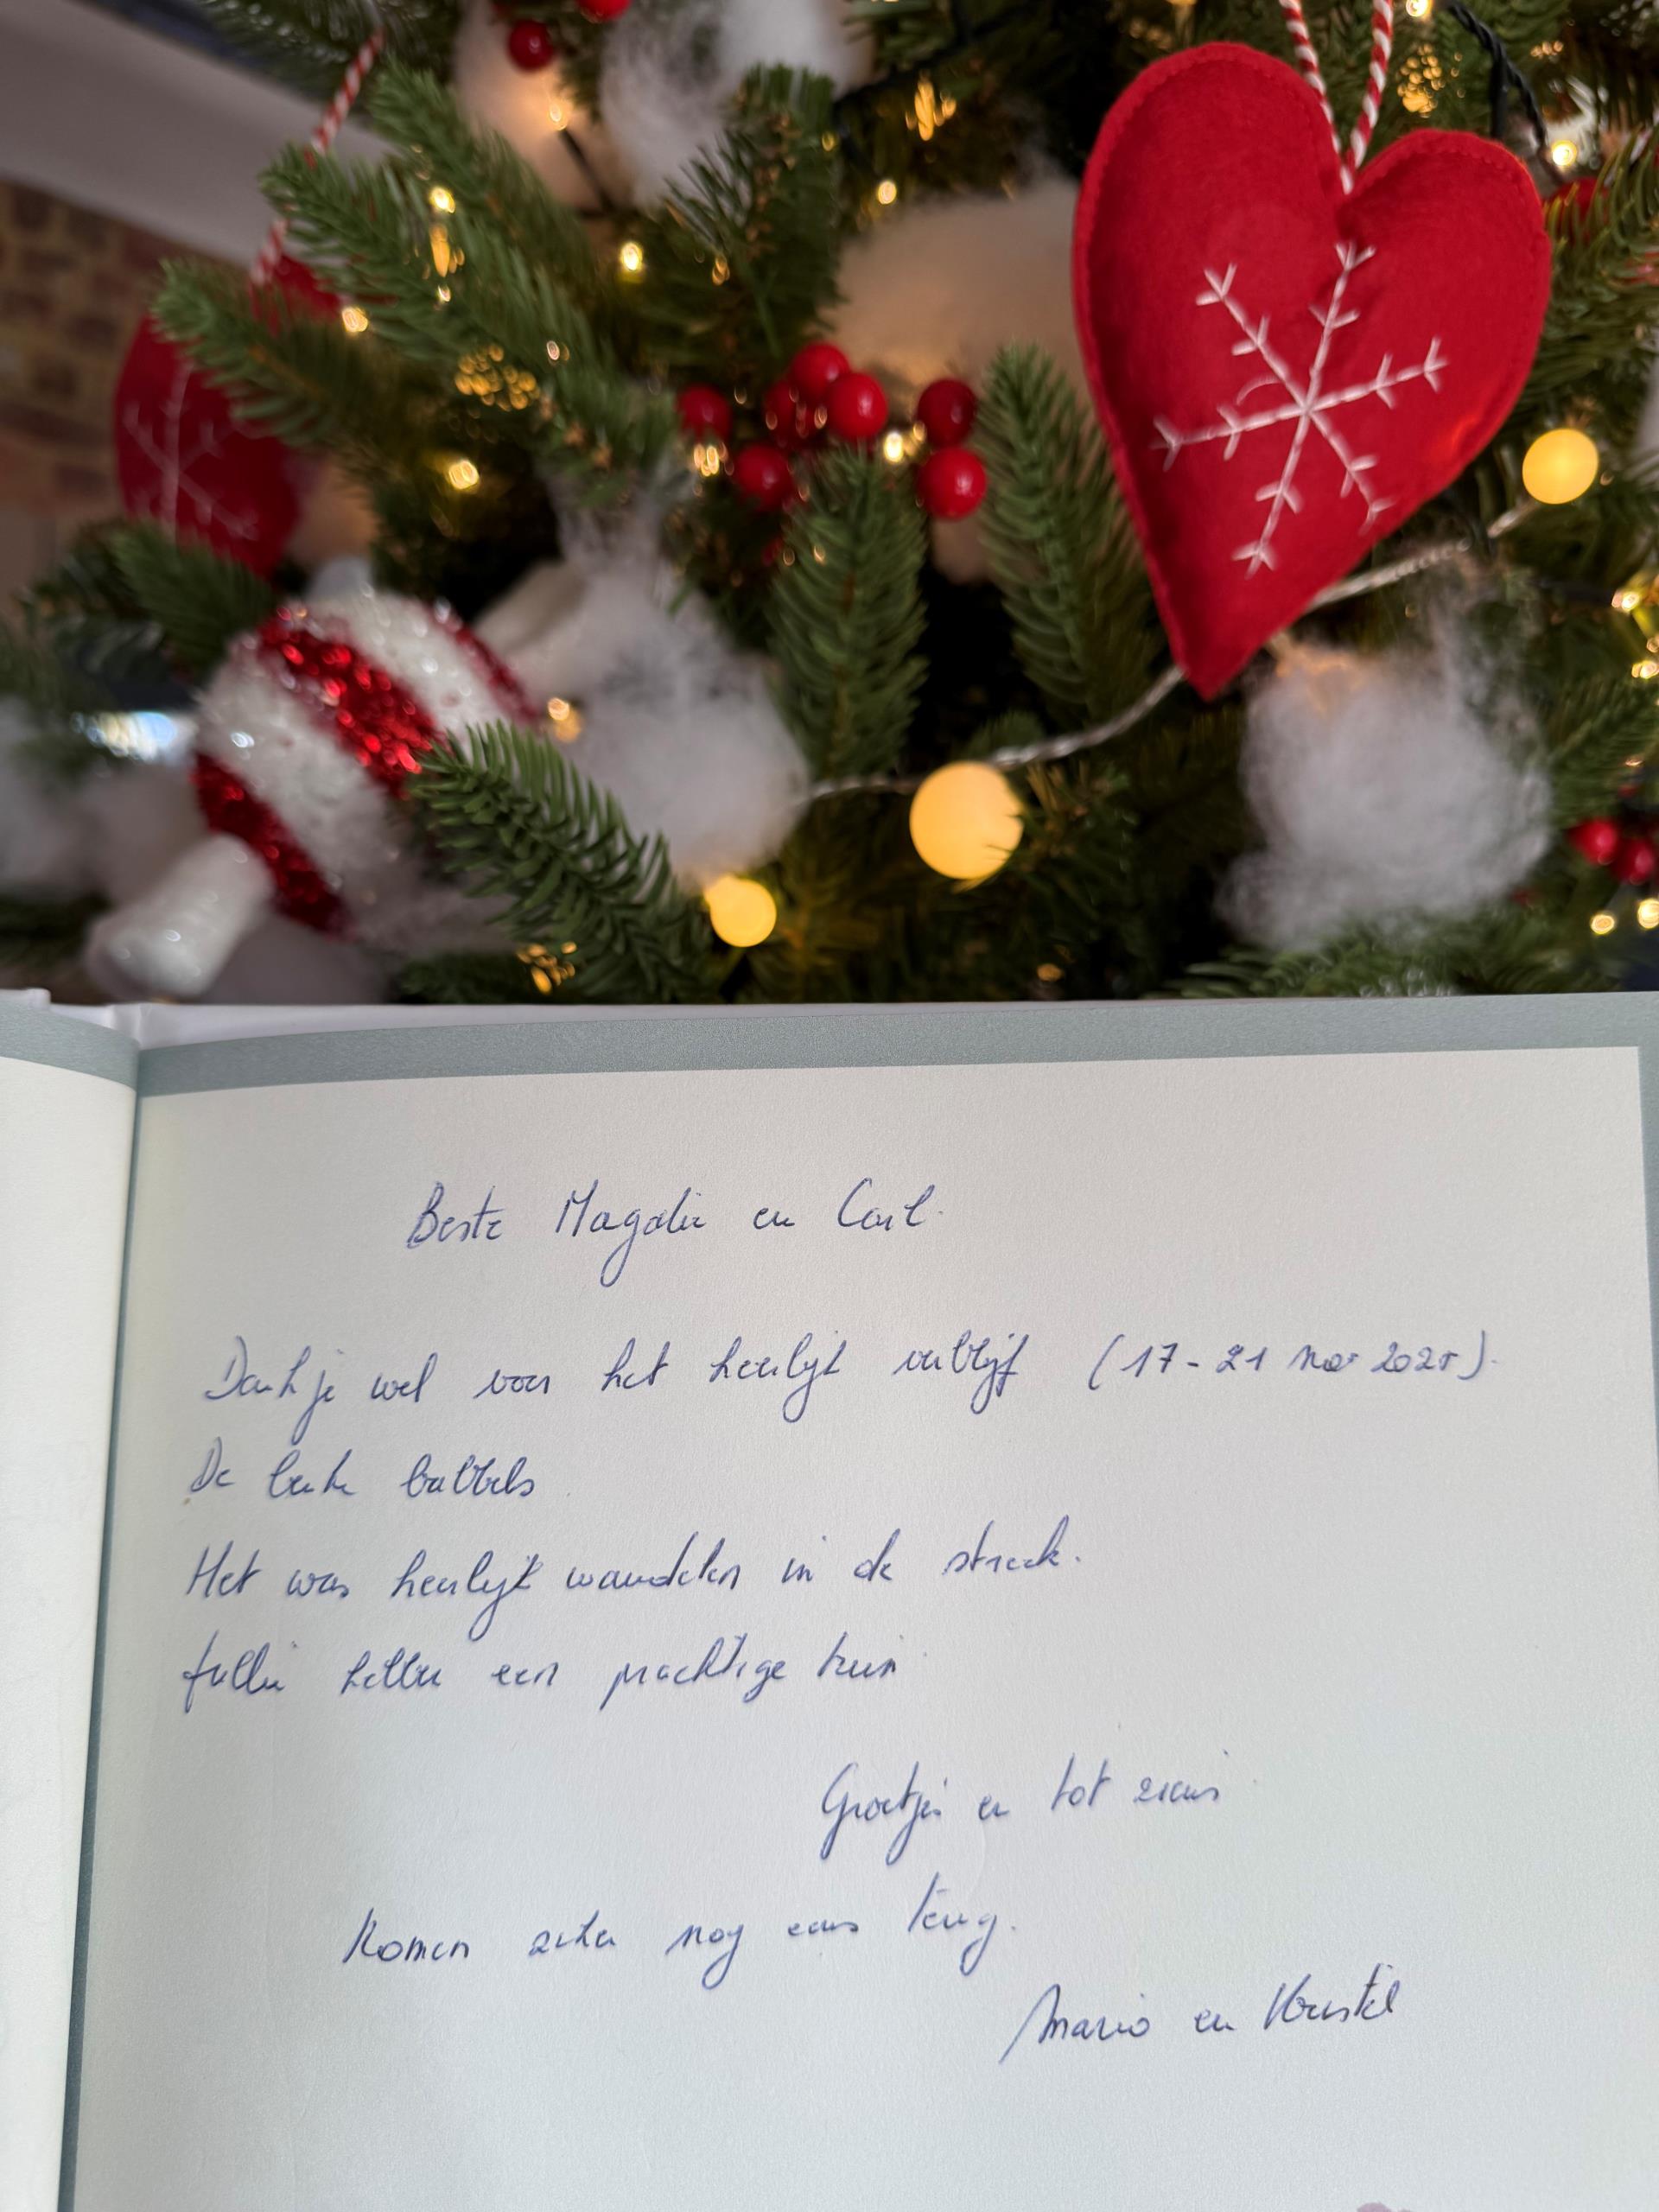 Beste Magalie en Carl.
Dank je wel voor het heerlijk verblijf (17-21 nov 2025).
De leuke babbels
Het was heerlijk wandelen in de streek.
Jullie hebben een prachtige tuin
Groetjes en tot ziens
Komen zeker nog eens terug.
Mario en Kristel